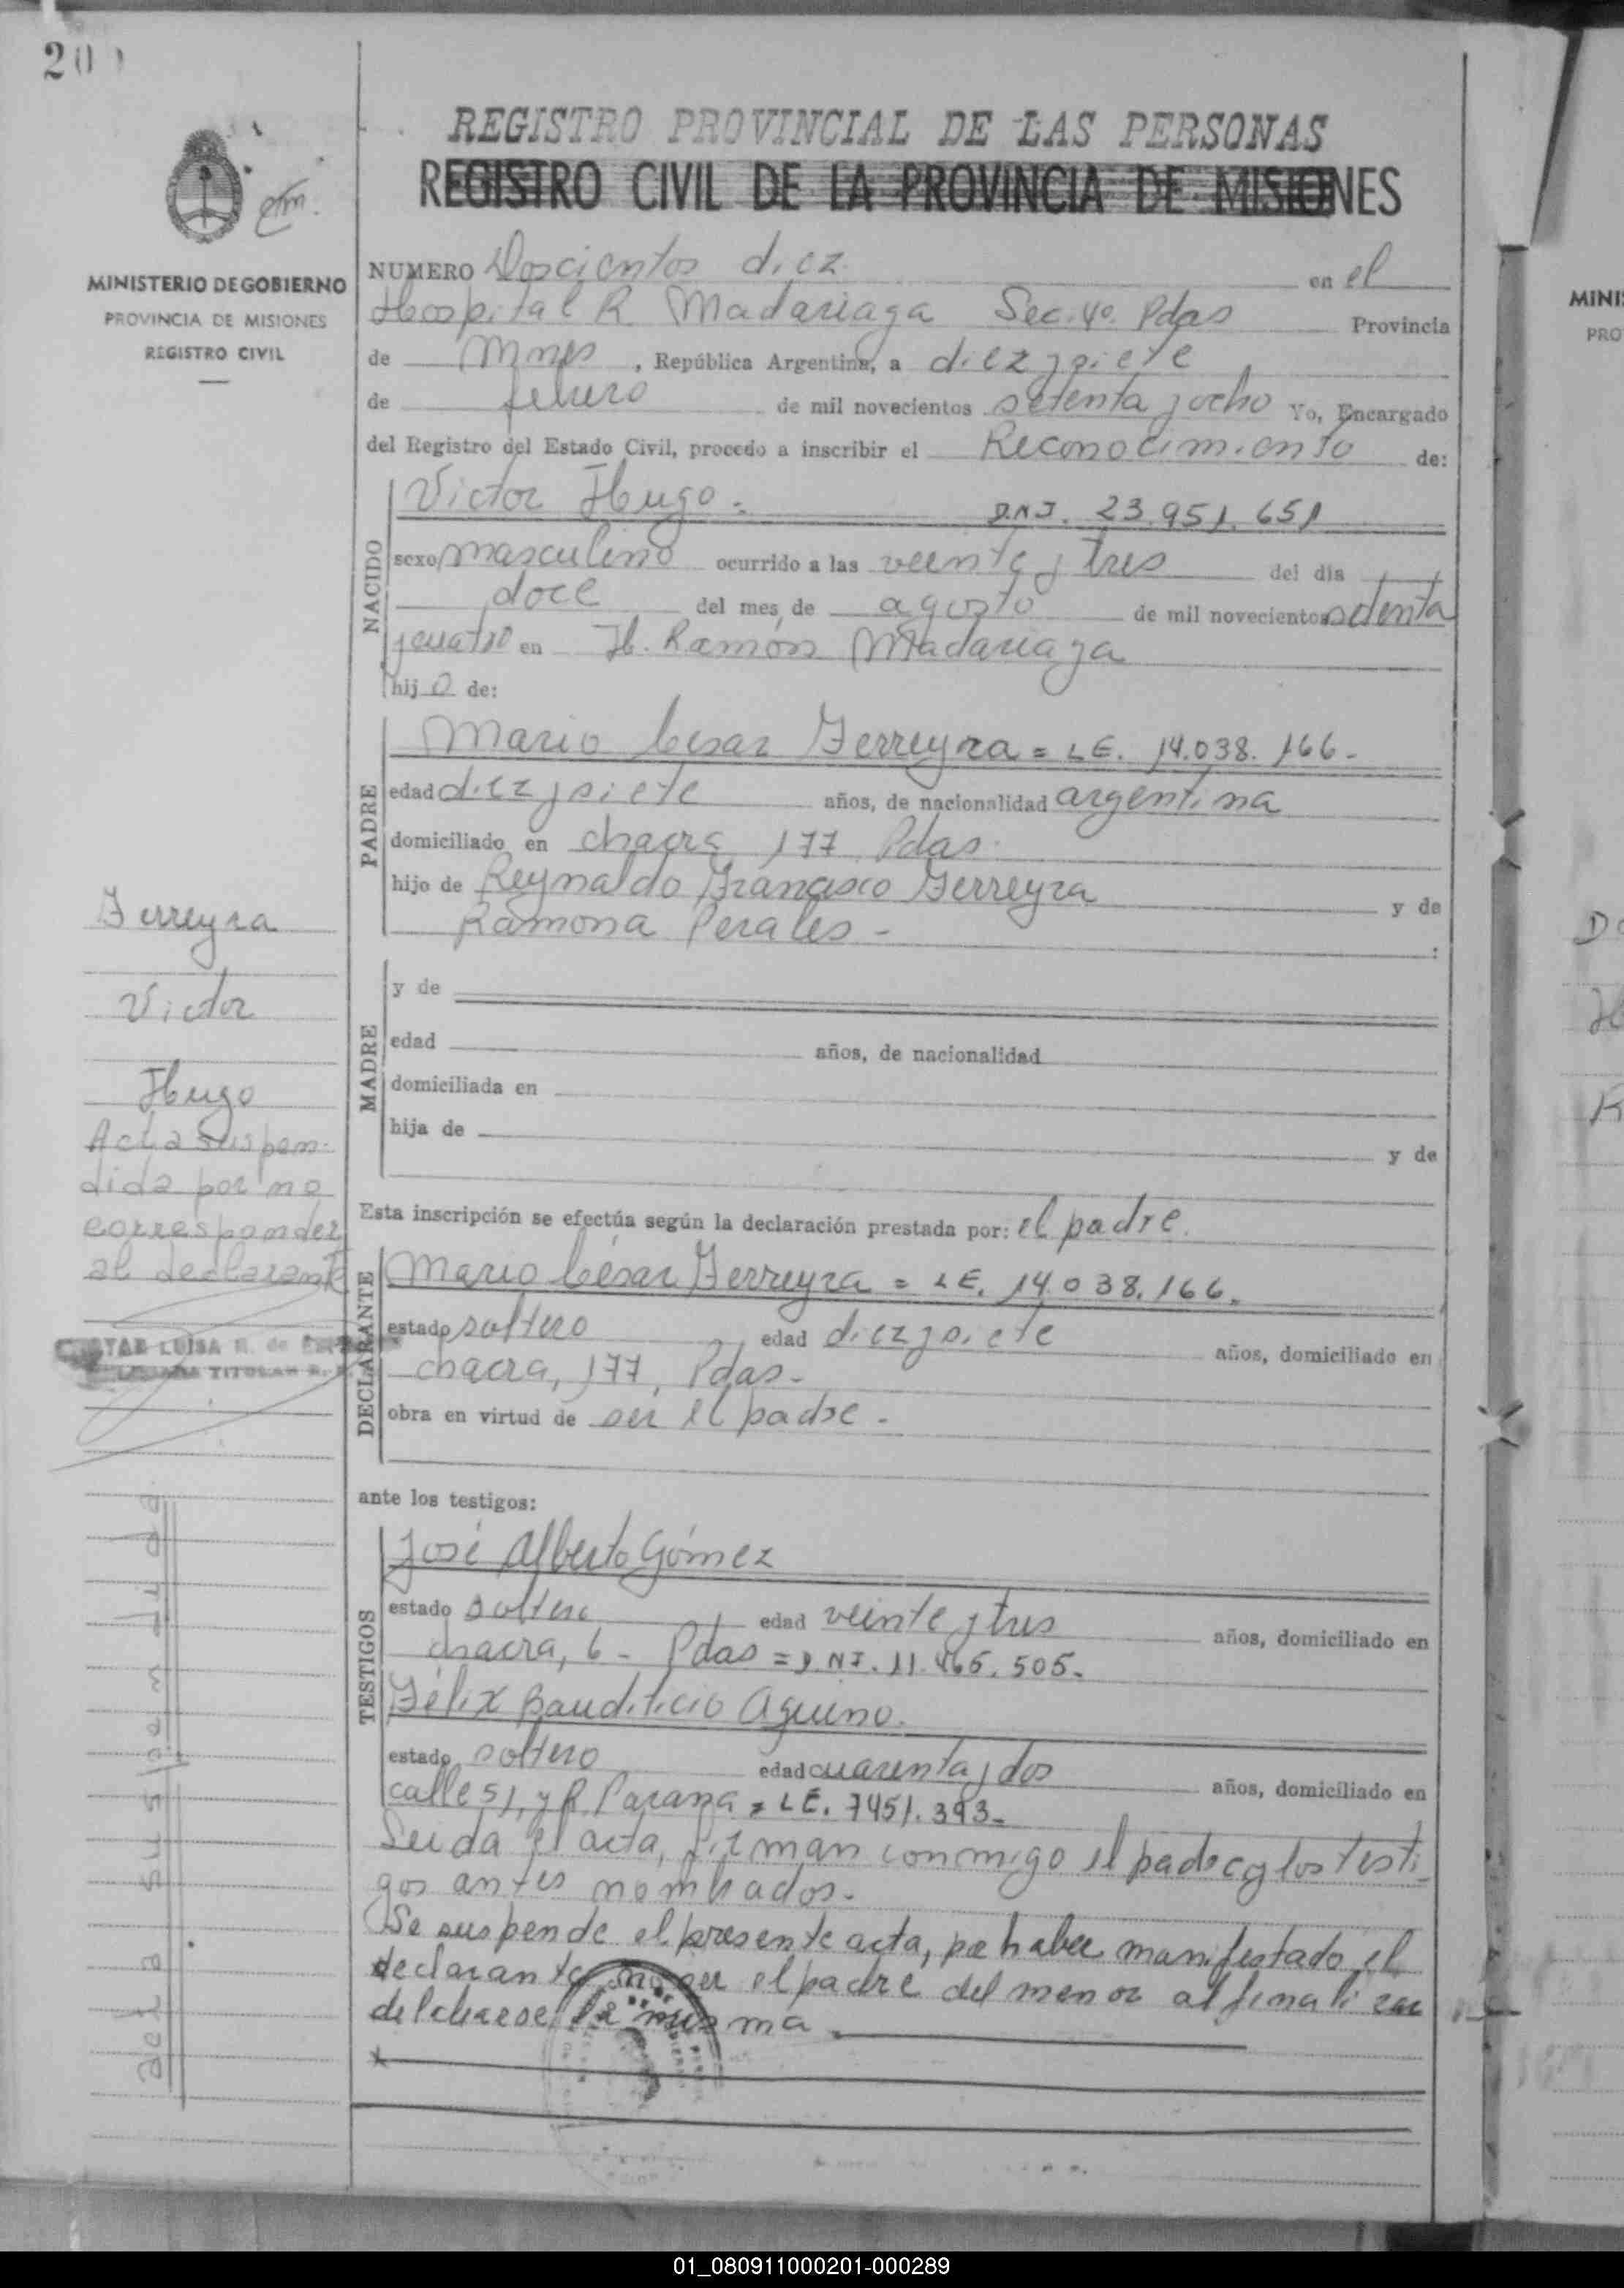 20
REGISTRO PROVINCIAL DE LAS PERSONAS
REGISTRO CIVIL DE LA PROVINCIA DE MISIONES
MINISTERIO DE GOBIERNO
PROVINCIA DE MISIONES
REGISTRO CIVIL
NUMERO Doscientos diez en el
Hospital R Madariaga Sec. 4º. Pdas Provincia
de Mnes, República Argentina, a diez y siete
de febrero de mil novecientos setenta y ocho Yo, Encargado
del Registro del Estado Civil, procedo a inscribir el Reconocimiento de:
NACIDO
Victor Hugo = D.N.I. 23.951.651
sexo masculino ocurrido a las veinte y tres del día
doce del mes de agosto de mil novecientos setenta
y cuatro en H. Ramón Madariaga
hijo de:
PADRE
Mario César Ferreyra = LE. 14.038.166-
edad diez y siete años, de nacionalidad argentina
domiciliado en chacra 177 Pdas.
hijo de Reynaldo Francisco Ferreyra y de
Ramona Perales -
MADRE
y de
edad años, de nacionalidad
domiciliada en
hija de y de
Esta inscripción se efectúa según la declaración prestada por: el padre.
DECLARANTE
Mario César Ferreyra = LE. 14.038.166.
estado soltero edad diez y siete años, domiciliado en
chacra, 177, Pdas-
obra en virtud de ser el padre -
ante los testigos:
TESTIGOS
José Alberto Gómez
estado soltero edad veinte y tres años, domiciliado en
chacra, 6 - Pdas = D.N.I. 11.466.505-
Félix Baudilicio Aquino.
estado soltero edad cuarenta y dos años, domiciliado en
calle 51, y R. Parana = LE. 7451.393-
Leida el acta, firman conmigo el padre y los testi-
gos antes nombrados.
Se suspende el presente acta, por haber manifestado el
declarante no ser el padre del menor al finalizar
de labrarse la misma
Ferreyra
Victor
Hugo
Acta suspen-
dida por no
corresponder
al declarante
LUISA
TITULAR
acta suspendida
MINIS
PRO
01_080911000201-000289